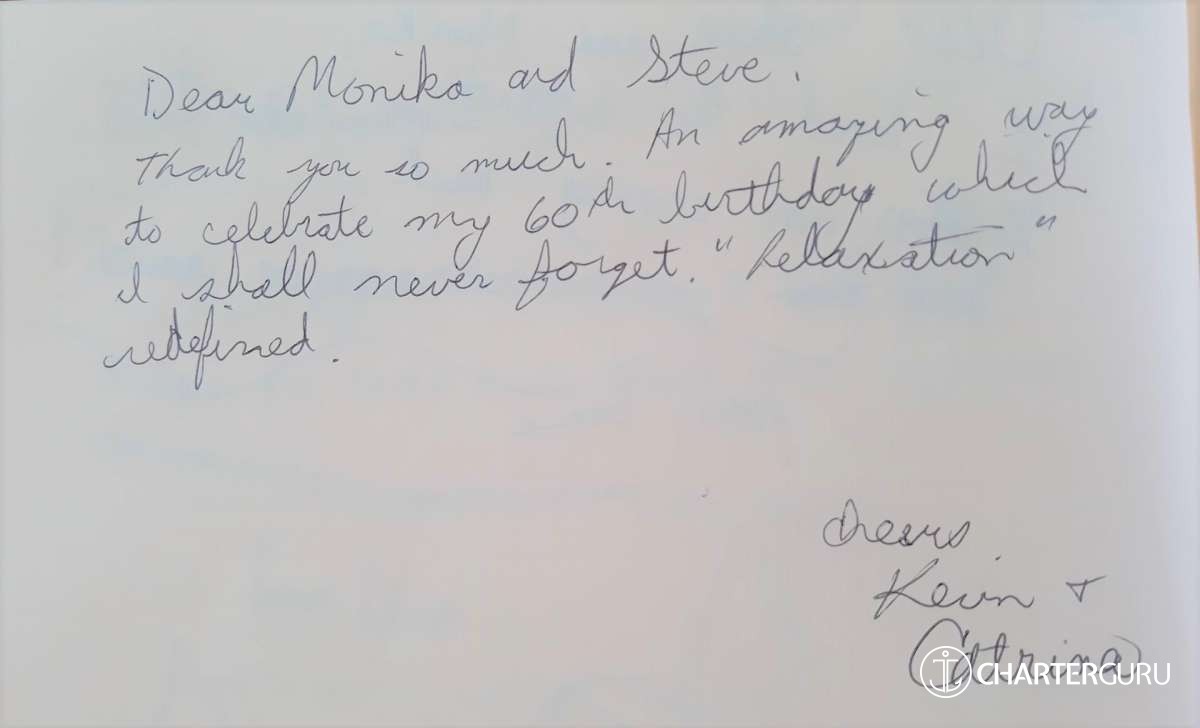 Dear Monika and Steve.
Thank you so much. An amazing way
to celebrate my 60th birthday which
I shall never forget. "Relaxation"
redefined.
Cheers
Kevin +
Catrina
CHARTERGURU